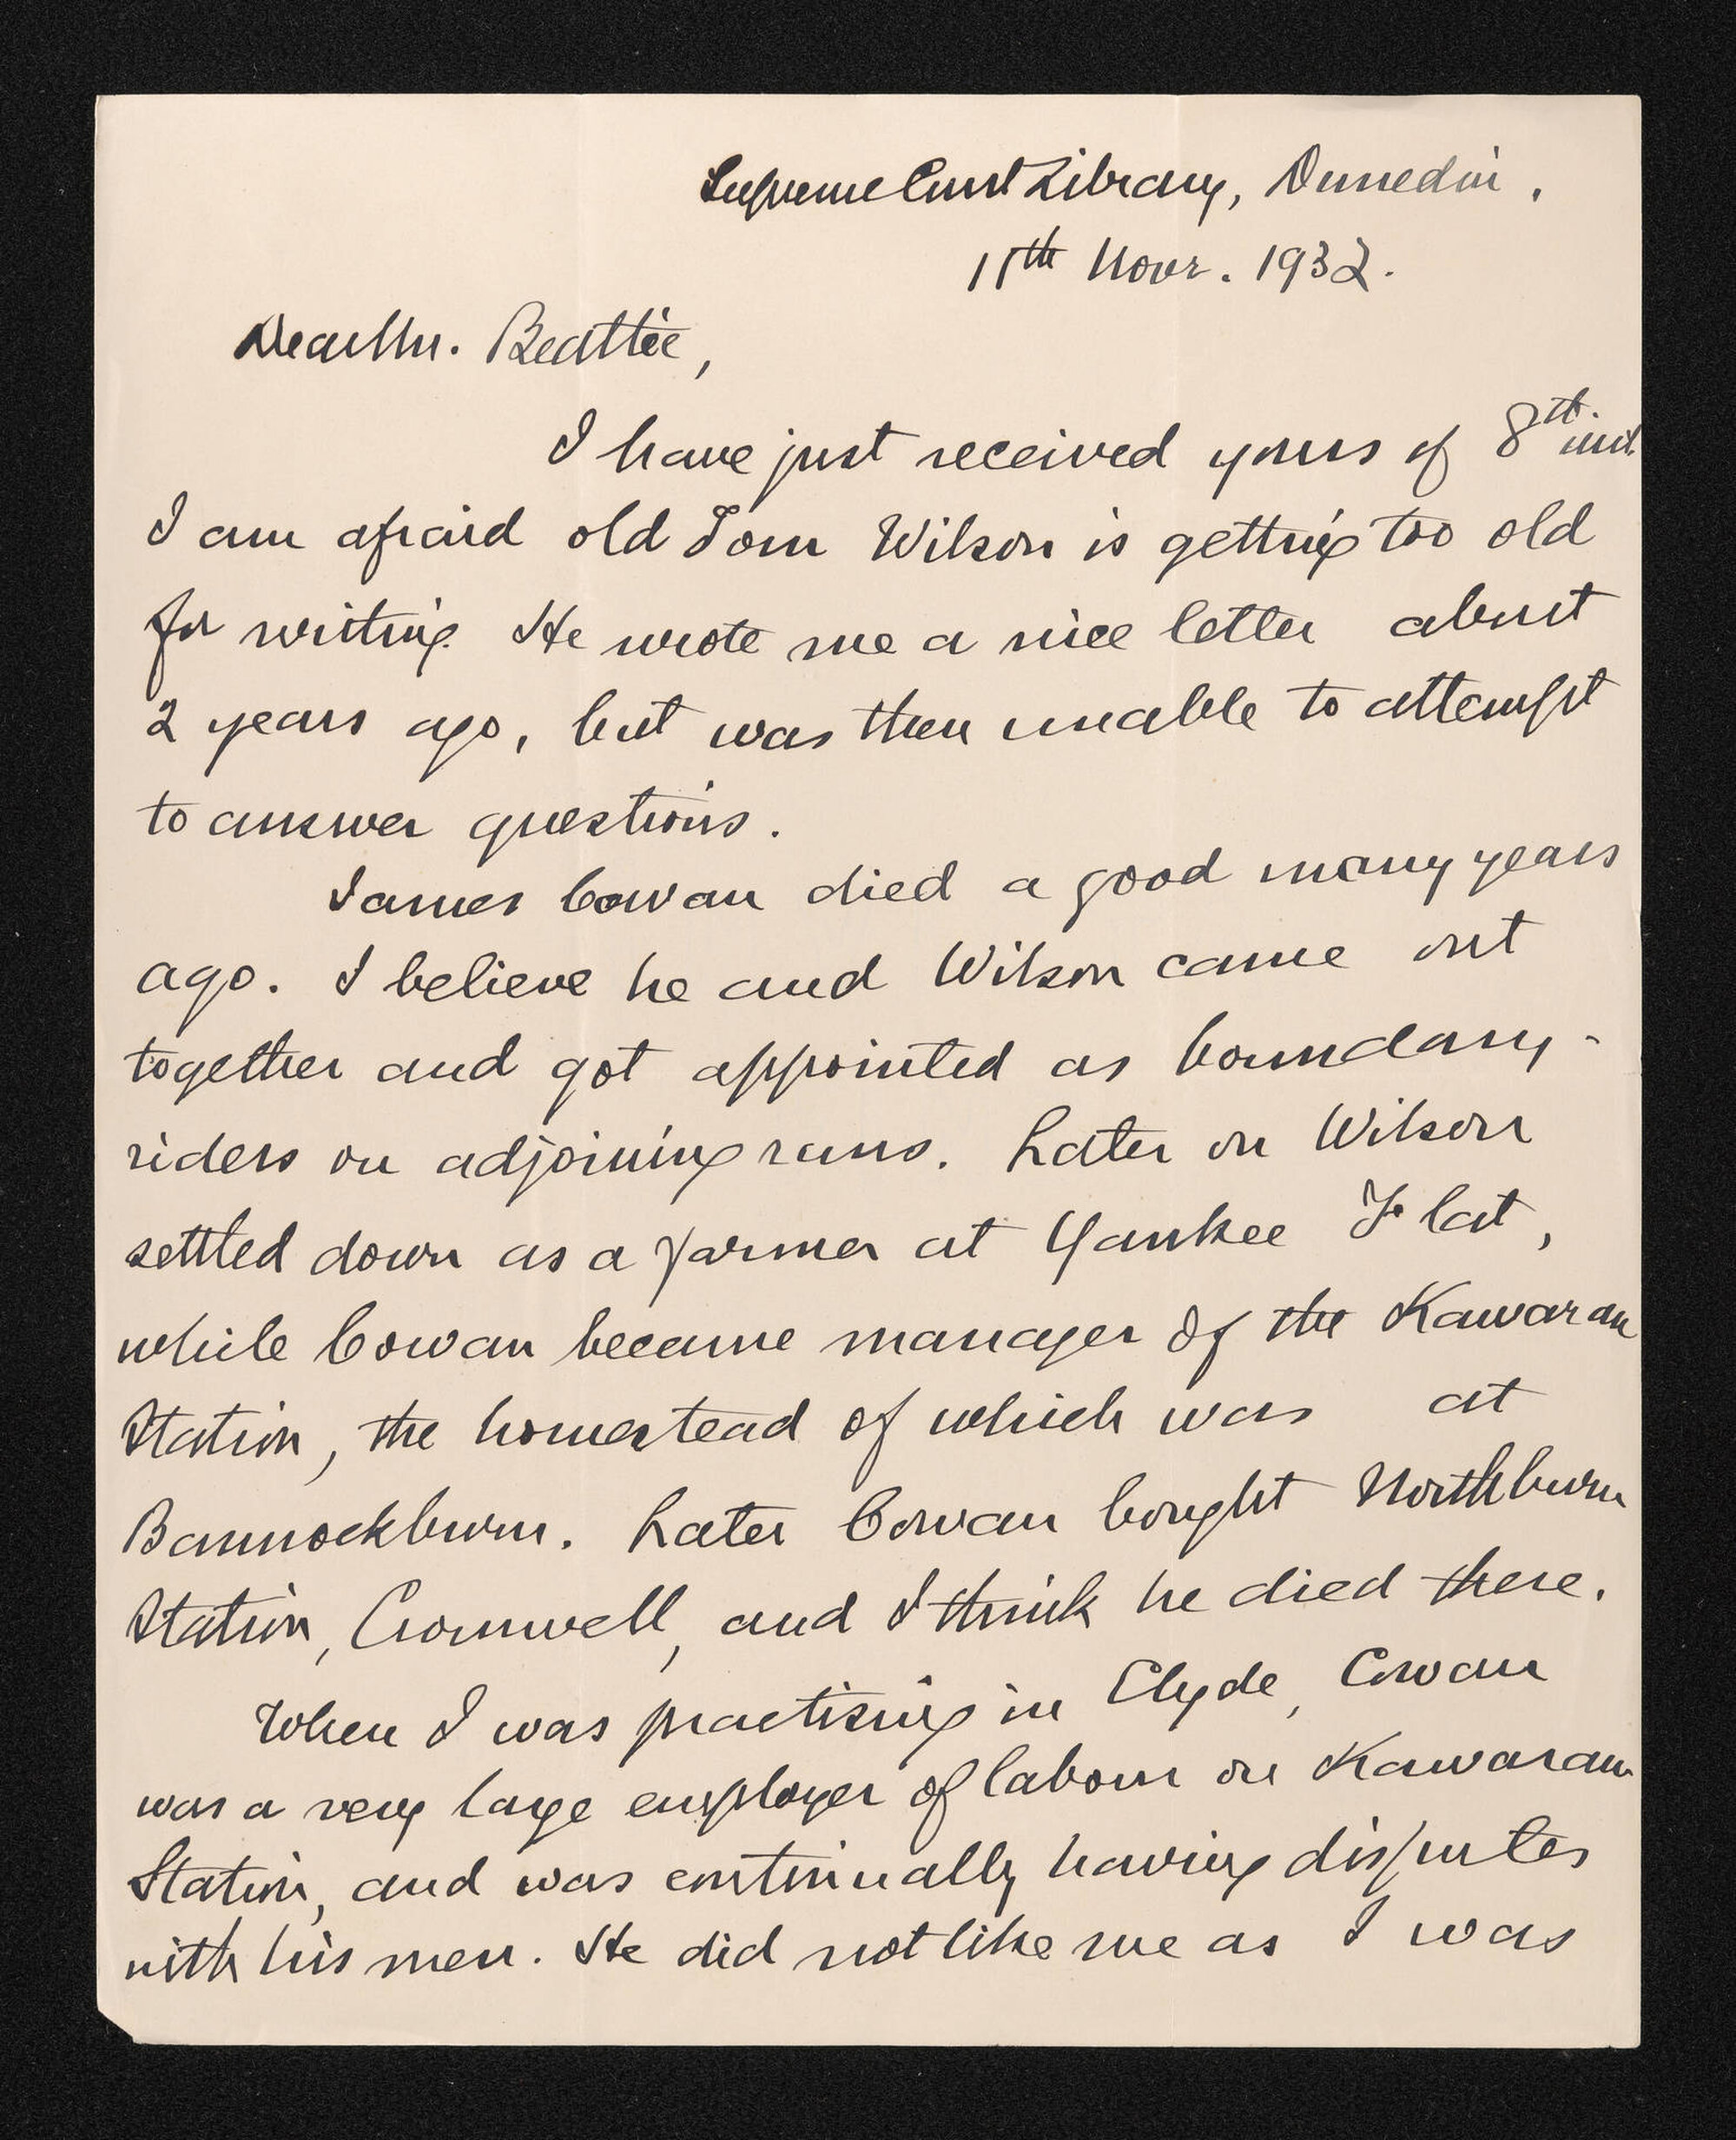 Supreme Court Library, Dunedin.
15th Novr. 1932.
Dear Mr. Beattie,
I have just received yours of 8th inst.
I am afraid old Tom Wilson is getting too old
for writing. He wrote me a nice letter about
2 years ago, but was then unable to attempt
to answer questions.
James Cowan died a good many years
ago. I believe he and Wilson came out
together and got appointed as boundary-
riders on adjoining runs. Later on Wilson
settled down as a farmer at Yankee Flat,
while Cowan became manager of the Kawarau
Station, the homestead of which was at
Bannockburn. Later Cowan bought Northburn
Station, Cromwell, and I think he died there.
When I was practising in Clyde, Cowan
was a very large employer of labour on Kawarau
Station, and was continually having disputes
with his men. He did not like me as I was